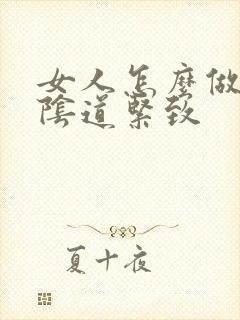 女人怎麼做
陰道緊致
夏十夜